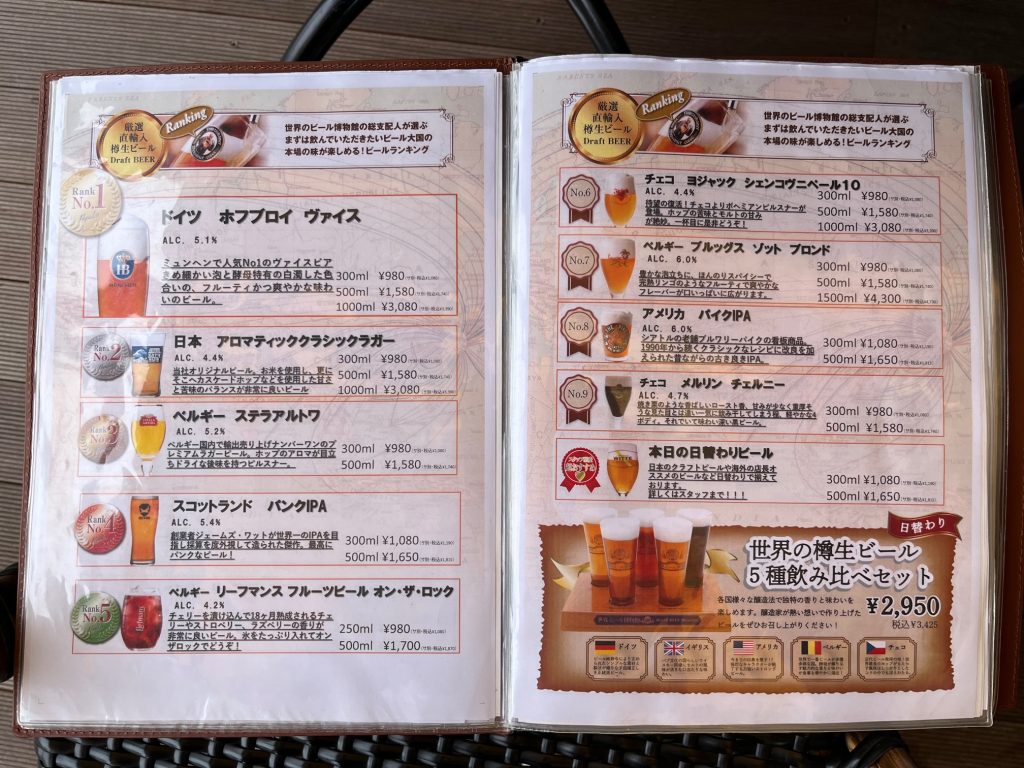 厳選
直輸入
樽生ビール
Draft BEER
Ranking
世界のビール博物館の総支配人が選ぶ
まずは飲んでいただきたいビール大国の
本場の味が楽しめる!ビールランキング
Rank
No.1
ドイツ ホフブロイ ヴァイス
ALC. 5.1%
HB
ミュンヘンで人気No1のヴァイスビア
きめ細かい泡と酵母特有の白濁した色
合いの、フルーティかつ爽やかな味わ
いのビール。
300ml ¥980
500ml ¥1,580
1000ml ¥3,080
Rank
No.2
日本 アロマティッククラシックラガー
ALC. 4.4%
当社オリジナルビール。お米を使用し、更に
そこへカスケードホップなどを使用した甘さ
と苦味のバランスが非常に良いビール
300ml ¥980
500ml ¥1,580
1000ml ¥3,080
Rank
No.3
ベルギー ステラアルトワ
ALC. 5.2%
ベルギー国内で輸出売り上げナンバーワンのプ
レミアムラガービール。ホップのアロマが目立
ちドライな後味を持つピルスナー。
300ml ¥980
500ml ¥1,580
Rank
No.4
スコットランド パンクIPA
ALC. 5.4%
創業者ジェームズ・ワットが世界一のIPAを目
指し採算を度外視して造られた傑作。最高に
パンクなビール!
300ml ¥1,080
500ml ¥1,650
Rank
No.5
ベルギー リーフマンス フルーツビール オン・ザ・ロック
ALC. 4.2%
チェリーを漬け込んで18ヶ月熟成されるチェ
リーやストロベリー、ラズベリーの香りが
非常に良いビール。氷をたっぷり入れてオン
ザロックでどうぞ!
250ml ¥980
500ml ¥1,700
厳選
直輸入
樽生ビール
Draft BEER
Ranking
世界のビール博物館の総支配人が選ぶ
まずは飲んでいただきたいビール大国の
本場の味が楽しめる!ビールランキング
No.6
チェコ ヨジャック シェンコヴニペール10
ALC. 4.4%
待望の復活!チェコよりボヘミアンピルスナーが
登場。ホップの苦味とモルトの甘み
が絶妙。一杯目に是非どうぞ!
300ml ¥980
500ml ¥1,580
1000ml ¥3,080
No.7
ベルギー ブルッグス ゾット ブロンド
ALC. 6.0%
豊かな泡立ちに、ほんのりスパイシーで
完熟リンゴのようなフルーティで爽やかな
フレーバーが口いっぱいに広がります。
300ml ¥980
500ml ¥1,580
1500ml ¥4,300
No.8
アメリカ パイクIPA
ALC. 6.0%
シアトルの老舗ブルワリーパイクの看板商品。
1990年から続くクラシックなレシピに改良を加
えられた昔ながらの古き良きIPA。
300ml ¥1,080
500ml ¥1,650
No.9
チェコ メルリン チェルニー
ALC. 4.7%
ボディ。それでいて味わい深い黒ビール。
300ml ¥980
500ml ¥1,580
本日の日替わりビール
日本のクラフトビールや海外の店長オ
ススメのビールなど日替わりで揃えて
おります。
詳しくはスタッフまで!!!
300ml ¥1,080
500ml ¥1,650
日替わり
世界の樽生ビール
5種飲み比べセット
各国様々な醸造法で独特の香りと味わいを
楽しめます。醸造家が熱い想いで作り上げた
ビールをぜひお召し上がりください!
¥2,950
税込¥3,425
ドイツ
イギリス
アメリカ
ベルギー
チェコ